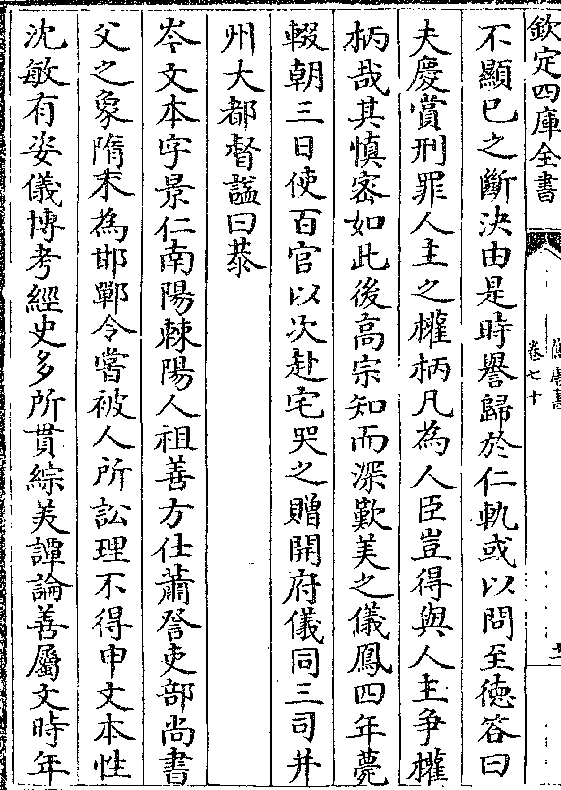 欽定四庫全書
卷七十
不顯已之斷決由是時譽歸於仁軌或以問至徳答曰
夫慶賞刑罪人主之權柄凡為人臣豈得與人主爭權
柄哉其慎密如此後高宗知而深歎美之儀鳳四年薨
輟朝三日使百官以次赴宅哭之贈開府儀同三司并
州大都督諡曰恭
岑文本字景仁南陽棘陽人祖善方仕蕭詧吏部尚書
父之象隋末為邯鄲令嘗被人所訟理不得申文本性
沈敏有姿儀博考經史多所貫綜美譚論善屬文時年